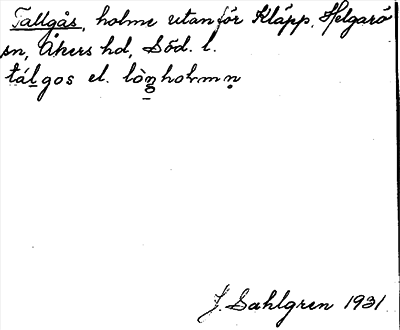 Tallgås, holme utanför Kläpp, Helgarö
sn, Åkers hd, Söd. l.
tálgos el. lòŋholmn̥
J. Sahlgren 1931